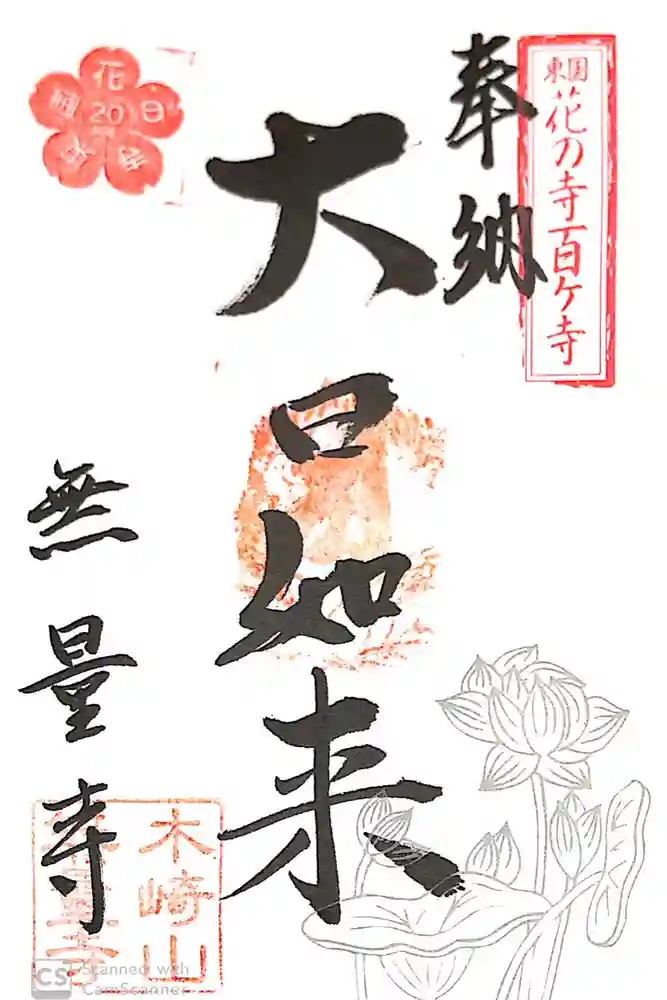 東国花の寺百ケ寺
奉納
大日如来
無量寺
木崎山
花
20
Scanned with
CamScanner
CS